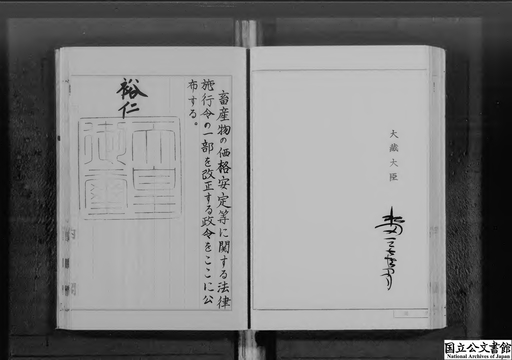 大蔵大臣
畜産物の価格安定等に関する法律
施行令の一部を改正する政令をここに公
布する。
裕仁
天皇
御璽
国立公文書館
National Archives of Japan